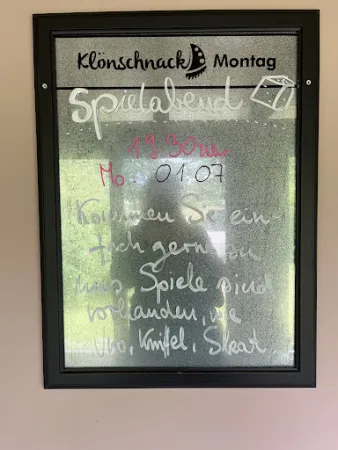 Klönschnack Montag
Spieleabend
19:30 Uhr
Mo. 01.07
Kommen Sie ein-
fach gerne zu
uns. Spiele sind
vorhanden, wie
Uno, Kniffel, Skat